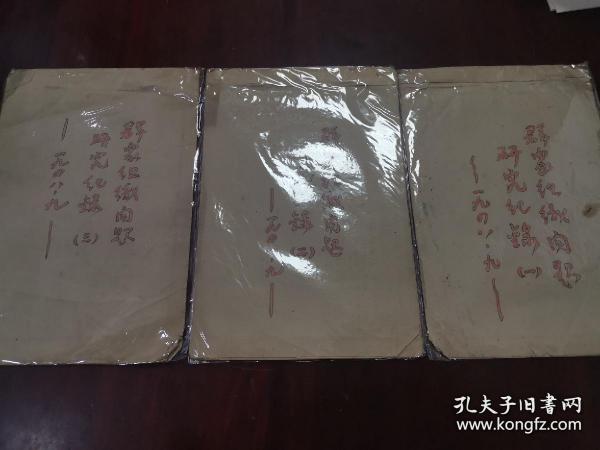 群众组织问题
研究纪录
(三)
一九四八·九
组织问题
录
(二)
一九四八·九
群众组织问题
研究纪录(一)
一九四八·九
孔夫子旧书网
www.kongfz.com